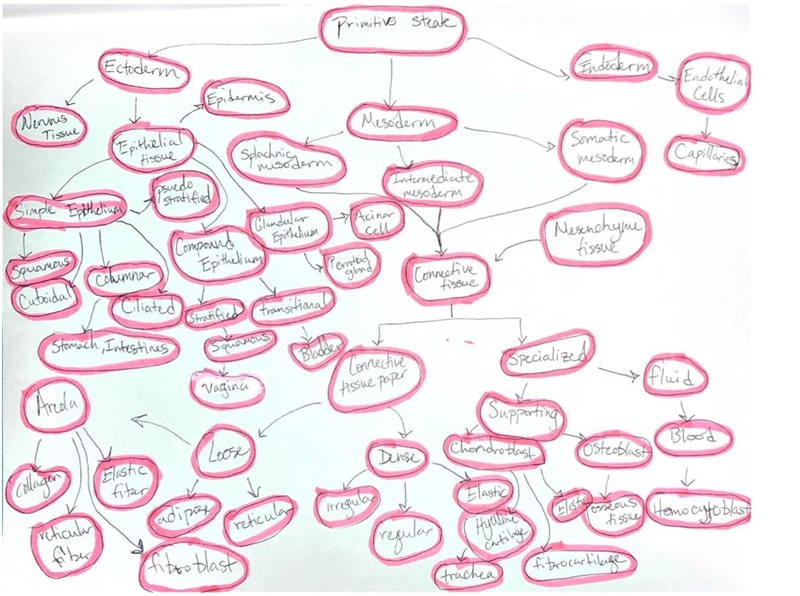 Primitive Steak
Ectoderm
Endoderm
Endothelial
Cells
Epidermis
Nervous
Tissue
Mesoderm
Epithelial
tissue
Splachnic
mesoderm
Somatic
mesoderm
Capillaries
Intermediate
mesoderm
psuedo
stratified
Simple Epithelium
Glandular
Epithelium
Acinar
cell
Mesenchyme
tissue
Compound
Epithelium
Squamous
Cuboidal
Columnar
Ciliated
gland
Connective
tissue
Stratified
transitional
Stomach, Intestines
Squamous
Bladder
Connective
tissue paper
Specialized
fluid
Vagina
Areola
Supporting
Blood
Loose
Dense
Chondroblast
Osteoblast
Collagen
Elastic
fiber
adipose
reticular
irregular
Elastic
Elastic
osseous
tissue
Homocytoblast
reticular
fiber
regular
Hyaline
cartilage
fibroblast
trachea
fibrocartilage